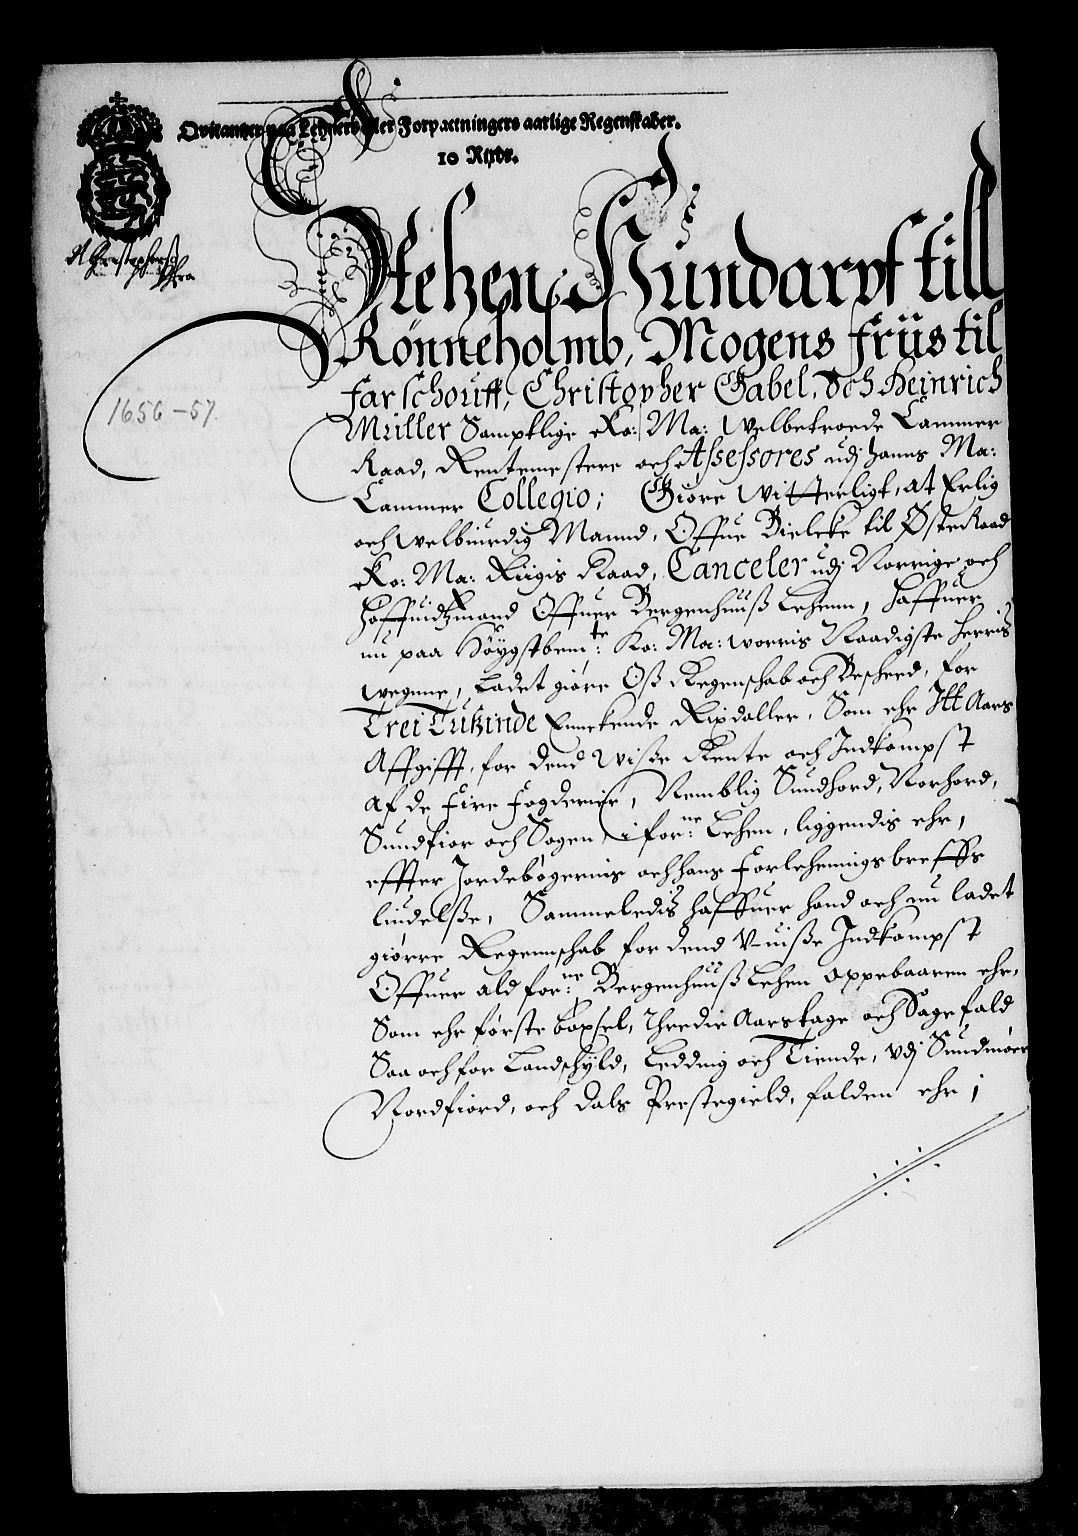 Qvitantzer paa Lehners eller Forpactningers aarlige Regenskaber.
10 Rixdr.
Stehen Hundarpf till
Rönneholmb, Mogens Früs til
Farschouff, Christopher Gabel, och Heinrich
Müller Samptlige Ko: Ma: Welbetroede Cammer
Raad, Rentemestere och Assessores udj hanns Ma:
Cammer Collegio; Giöre Witterligt, at Erlig
och welbiurdig Mannd, Offue Bielcke til Østeraad
Ko: Ma: Riigis Raad, Canceler udj Norrige och
Høffuidtzmand Offuer Bergenhuuß Lehenn, haffuer
nu paa Höygstbemte: Ko: Ma: worris Naadigste Herris
wegnne, ladet giöre Oß Regenschab och Bescheed, for
Trei Tußinde Ennekende Rixdaller, Som ehr Itt Aars
Affgifft, for dend Wiße Rente och Indkompst
Af de Fire Fogderier, Nemblig Sundhord, Norhord,
Sundfior och Sogen i forne: Lehen, liggendis ehr,
effter Jordebögernis och hans Forlehningsbreffs
liudelße, Sammeledis haffuer hand och nu ladet
giörre Regennschab for dend Vuiße Indkompst
Offuer ald forne: Bergenhuuß Lehen oppebaaren ehr,
Som ehr förste bøxsel, Thredie Aarstage och Sagefald
Saa och for Landschyld, Leding och Tiende, Vdj Sundmöer
Nordfiord, och Dals Prestegield, falden ehr;
1656-57.